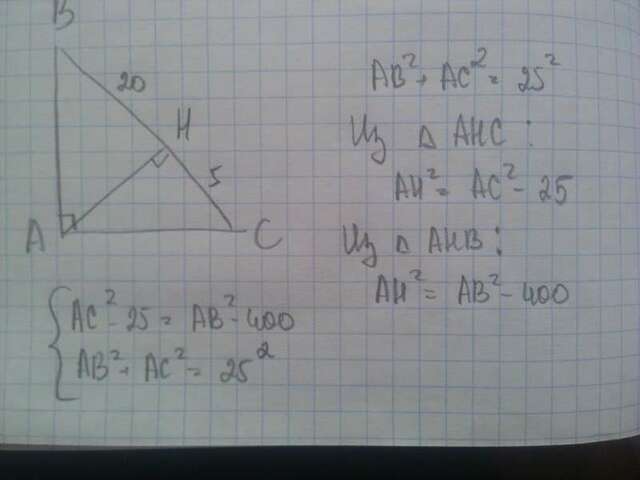 B
20
H
5
A
C
AB² + AC² = 25²
Из △ AHC :
AH² = AC² - 25
Из △ AHB :
AH² = AB² - 400
{ AC² - 25 = AB² - 400
AB² + AC² = 25²